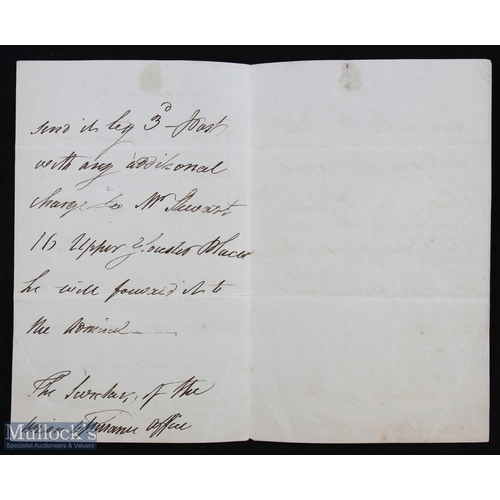 send it by 3d Post
with any additional
charge to Mr Stewart
16 Upper Gloucester Place
he will forward it to
the Admiral
The Secretary of the
Office
Mullock's
Specialist Auctioneers & Valuers